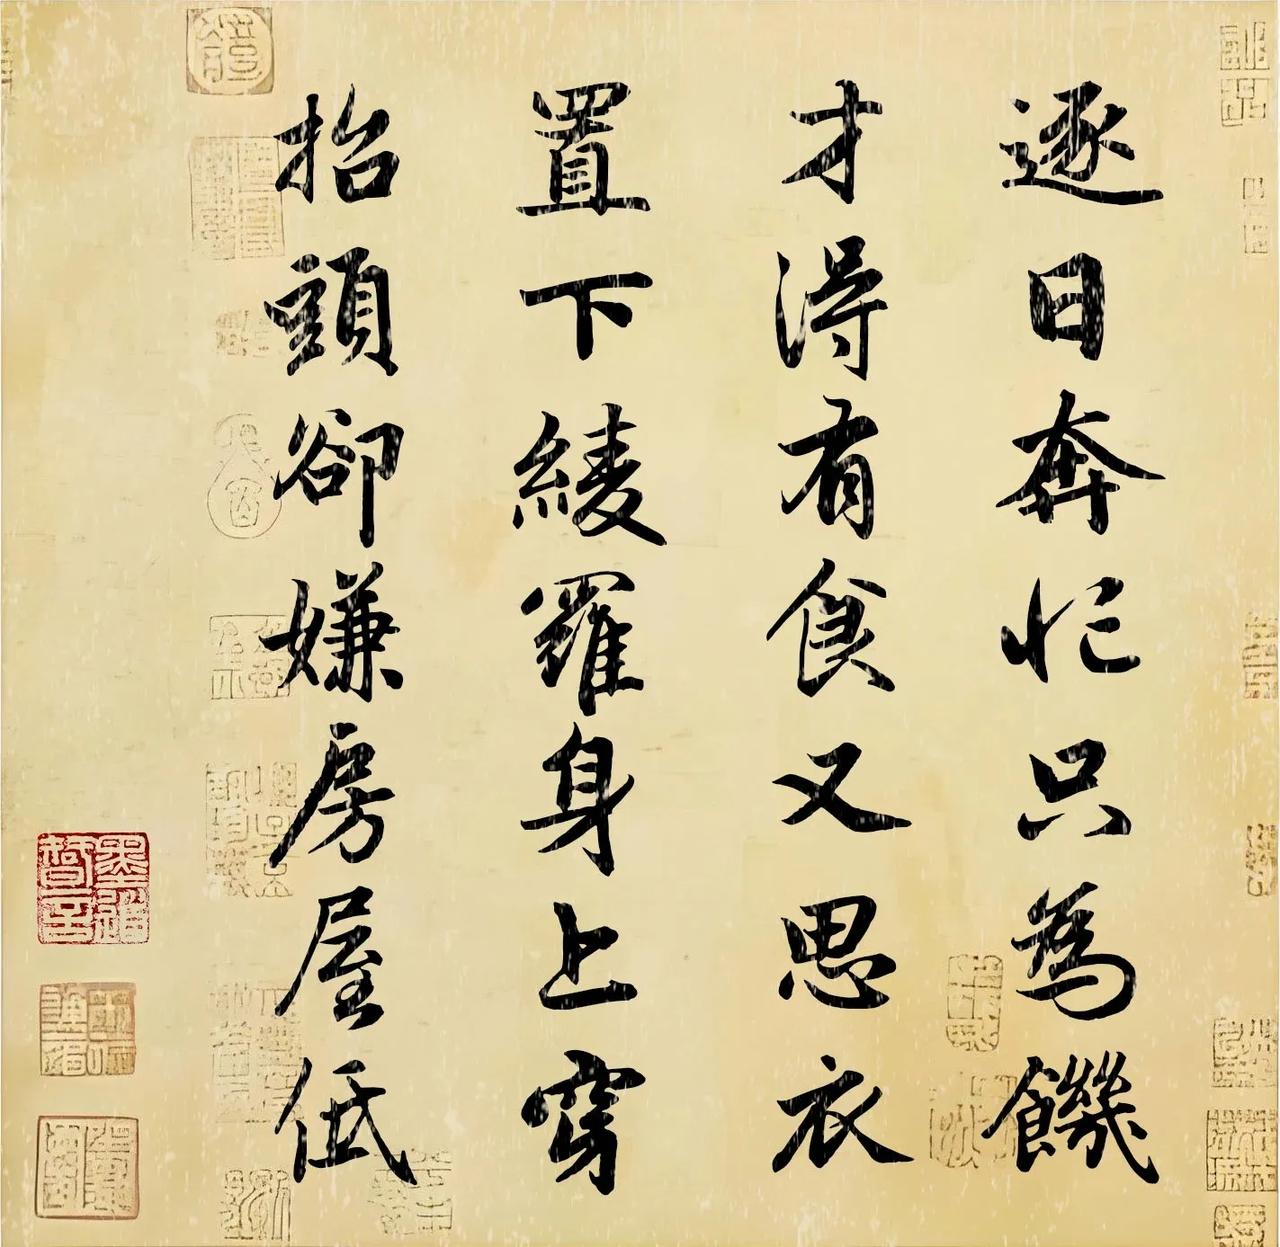 逐日奔忙只為饑
才得有食又思衣
置下綾羅身上穿
抬頭卻嫌房屋低